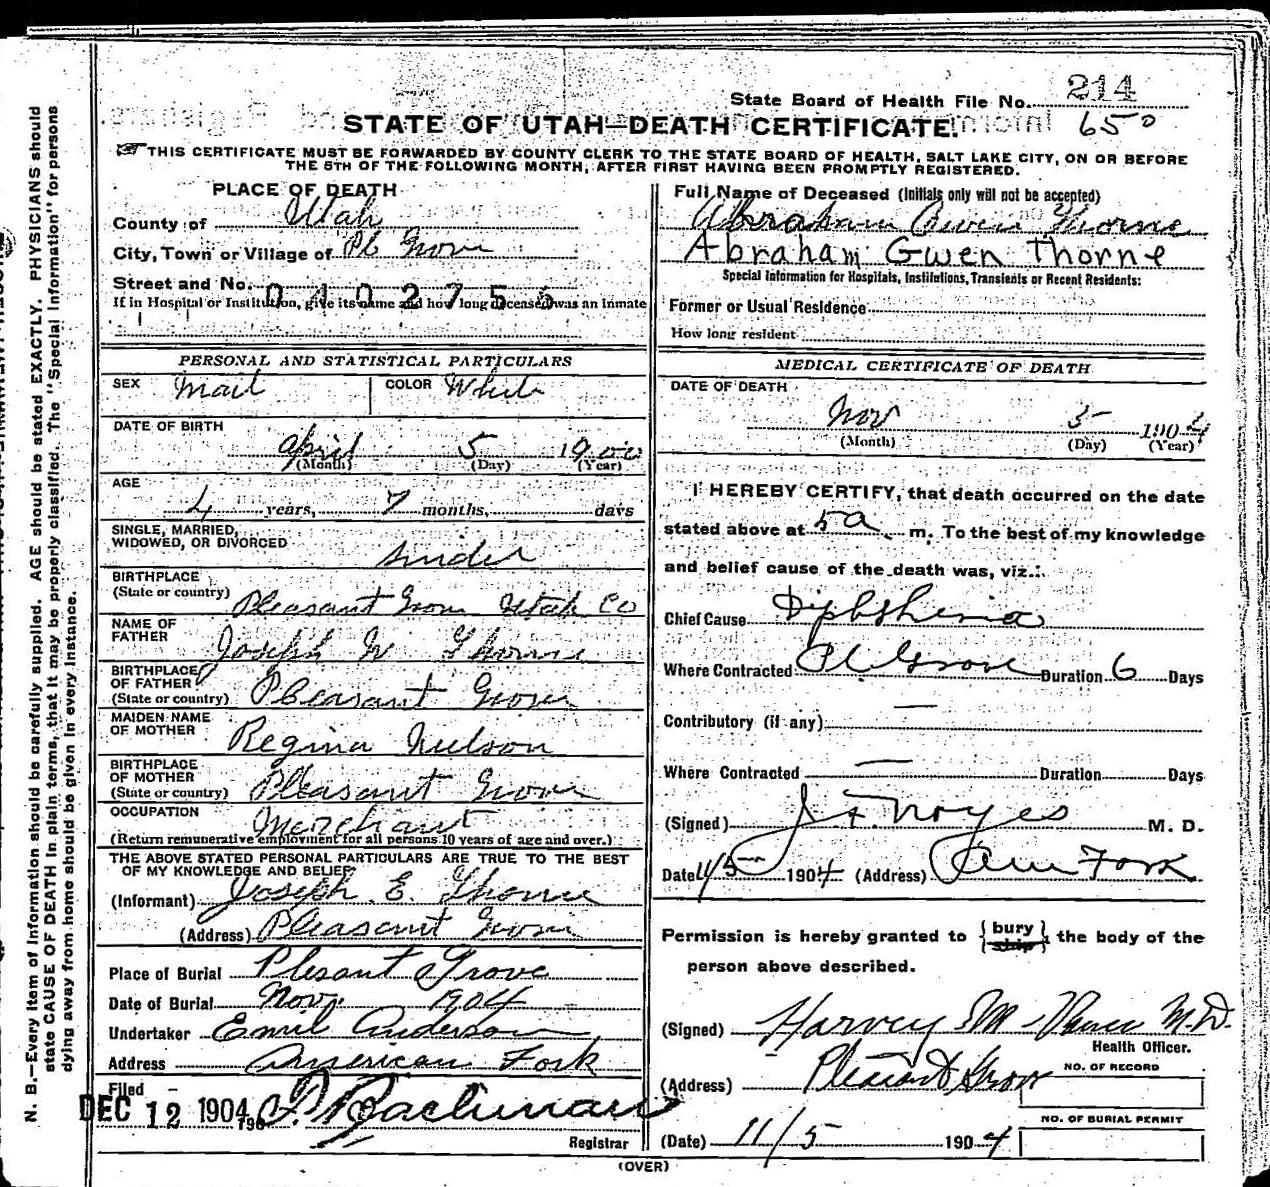 State Board of Health File No. 214
650
STATE OF UTAH—DEATH CERTIFICATE.
THIS CERTIFICATE MUST BE FORWARDED BY COUNTY CLERK TO THE STATE BOARD OF HEALTH, SALT LAKE CITY, ON OR BEFORE
THE 5TH OF THE FOLLOWING MONTH, AFTER FIRST HAVING BEEN PROMPTLY REGISTERED.
PLACE OF DEATH
County of Utah
City, Town or Village of Pl Grove
Street and No.
If in Hospital or Institution, give its name and how long deceased was an inmate
Full Name of Deceased (Initials only will not be accepted)
Abraham Owen Thorne
Abraham Gwen Thorne
Special Information for Hospitals, Institutions, Transients or Recent Residents:
Former or Usual Residence
How long resident
PERSONAL AND STATISTICAL PARTICULARS
SEX Mail COLOR White
DATE OF BIRTH
April 5 1900
(Month) (Day) (Year)
AGE
4 years, 7 months, days
SINGLE, MARRIED,
WIDOWED, OR DIVORCED
BIRTHPLACE
(State or country) Pleasant Grove Utah Co
NAME OF
FATHER Joseph W Thorne
BIRTHPLACE
OF FATHER
(State or country) Pleasant Grove
MAIDEN NAME
OF MOTHER Regina Nielson
BIRTHPLACE
OF MOTHER
(State or country) Pleasant Grove
OCCUPATION Merchant
(Return remunerative employment for all persons 10 years of age and over.)
THE ABOVE STATED PERSONAL PARTICULARS ARE TRUE TO THE BEST
OF MY KNOWLEDGE AND BELIEF
(Informant) Joseph E. Thorne
(Address) Pleasant Grove
Place of Burial Plesant Grove
Date of Burial Nov. 1904
Undertaker Emil Anderson
Address American Fork
Filed
DEC 12 1904 190
Registrar
MEDICAL CERTIFICATE OF DEATH
DATE OF DEATH
Nov 5 1904
(Month) (Day) (Year)
I HEREBY CERTIFY, that death occurred on the date
stated above at 5 a m. To the best of my knowledge
and belief cause of the death was, viz.:
Chief Cause Diphtheria
Where Contracted Pl Grove Duration 6 Days
Contributory (if any) —
Where Contracted — Duration Days
(Signed) J F Noyes M. D.
Date 11/5 1904 (Address) Am Fork
Permission is hereby granted to {bury / ship} the body of the
person above described.
(Signed) Harvey M M.D.
Health Officer.
(Address) Pleasant Grove
NO. OF RECORD
NO. OF BURIAL PERMIT
(Date) 11/5 1904
(OVER)
N. B.—Every item of information should be carefully supplied. AGE should be stated EXACTLY. PHYSICIANS should
state CAUSE OF DEATH in plain terms, that it may be properly classified. The "Special Information" for persons
dying away from home should be given in every instance.